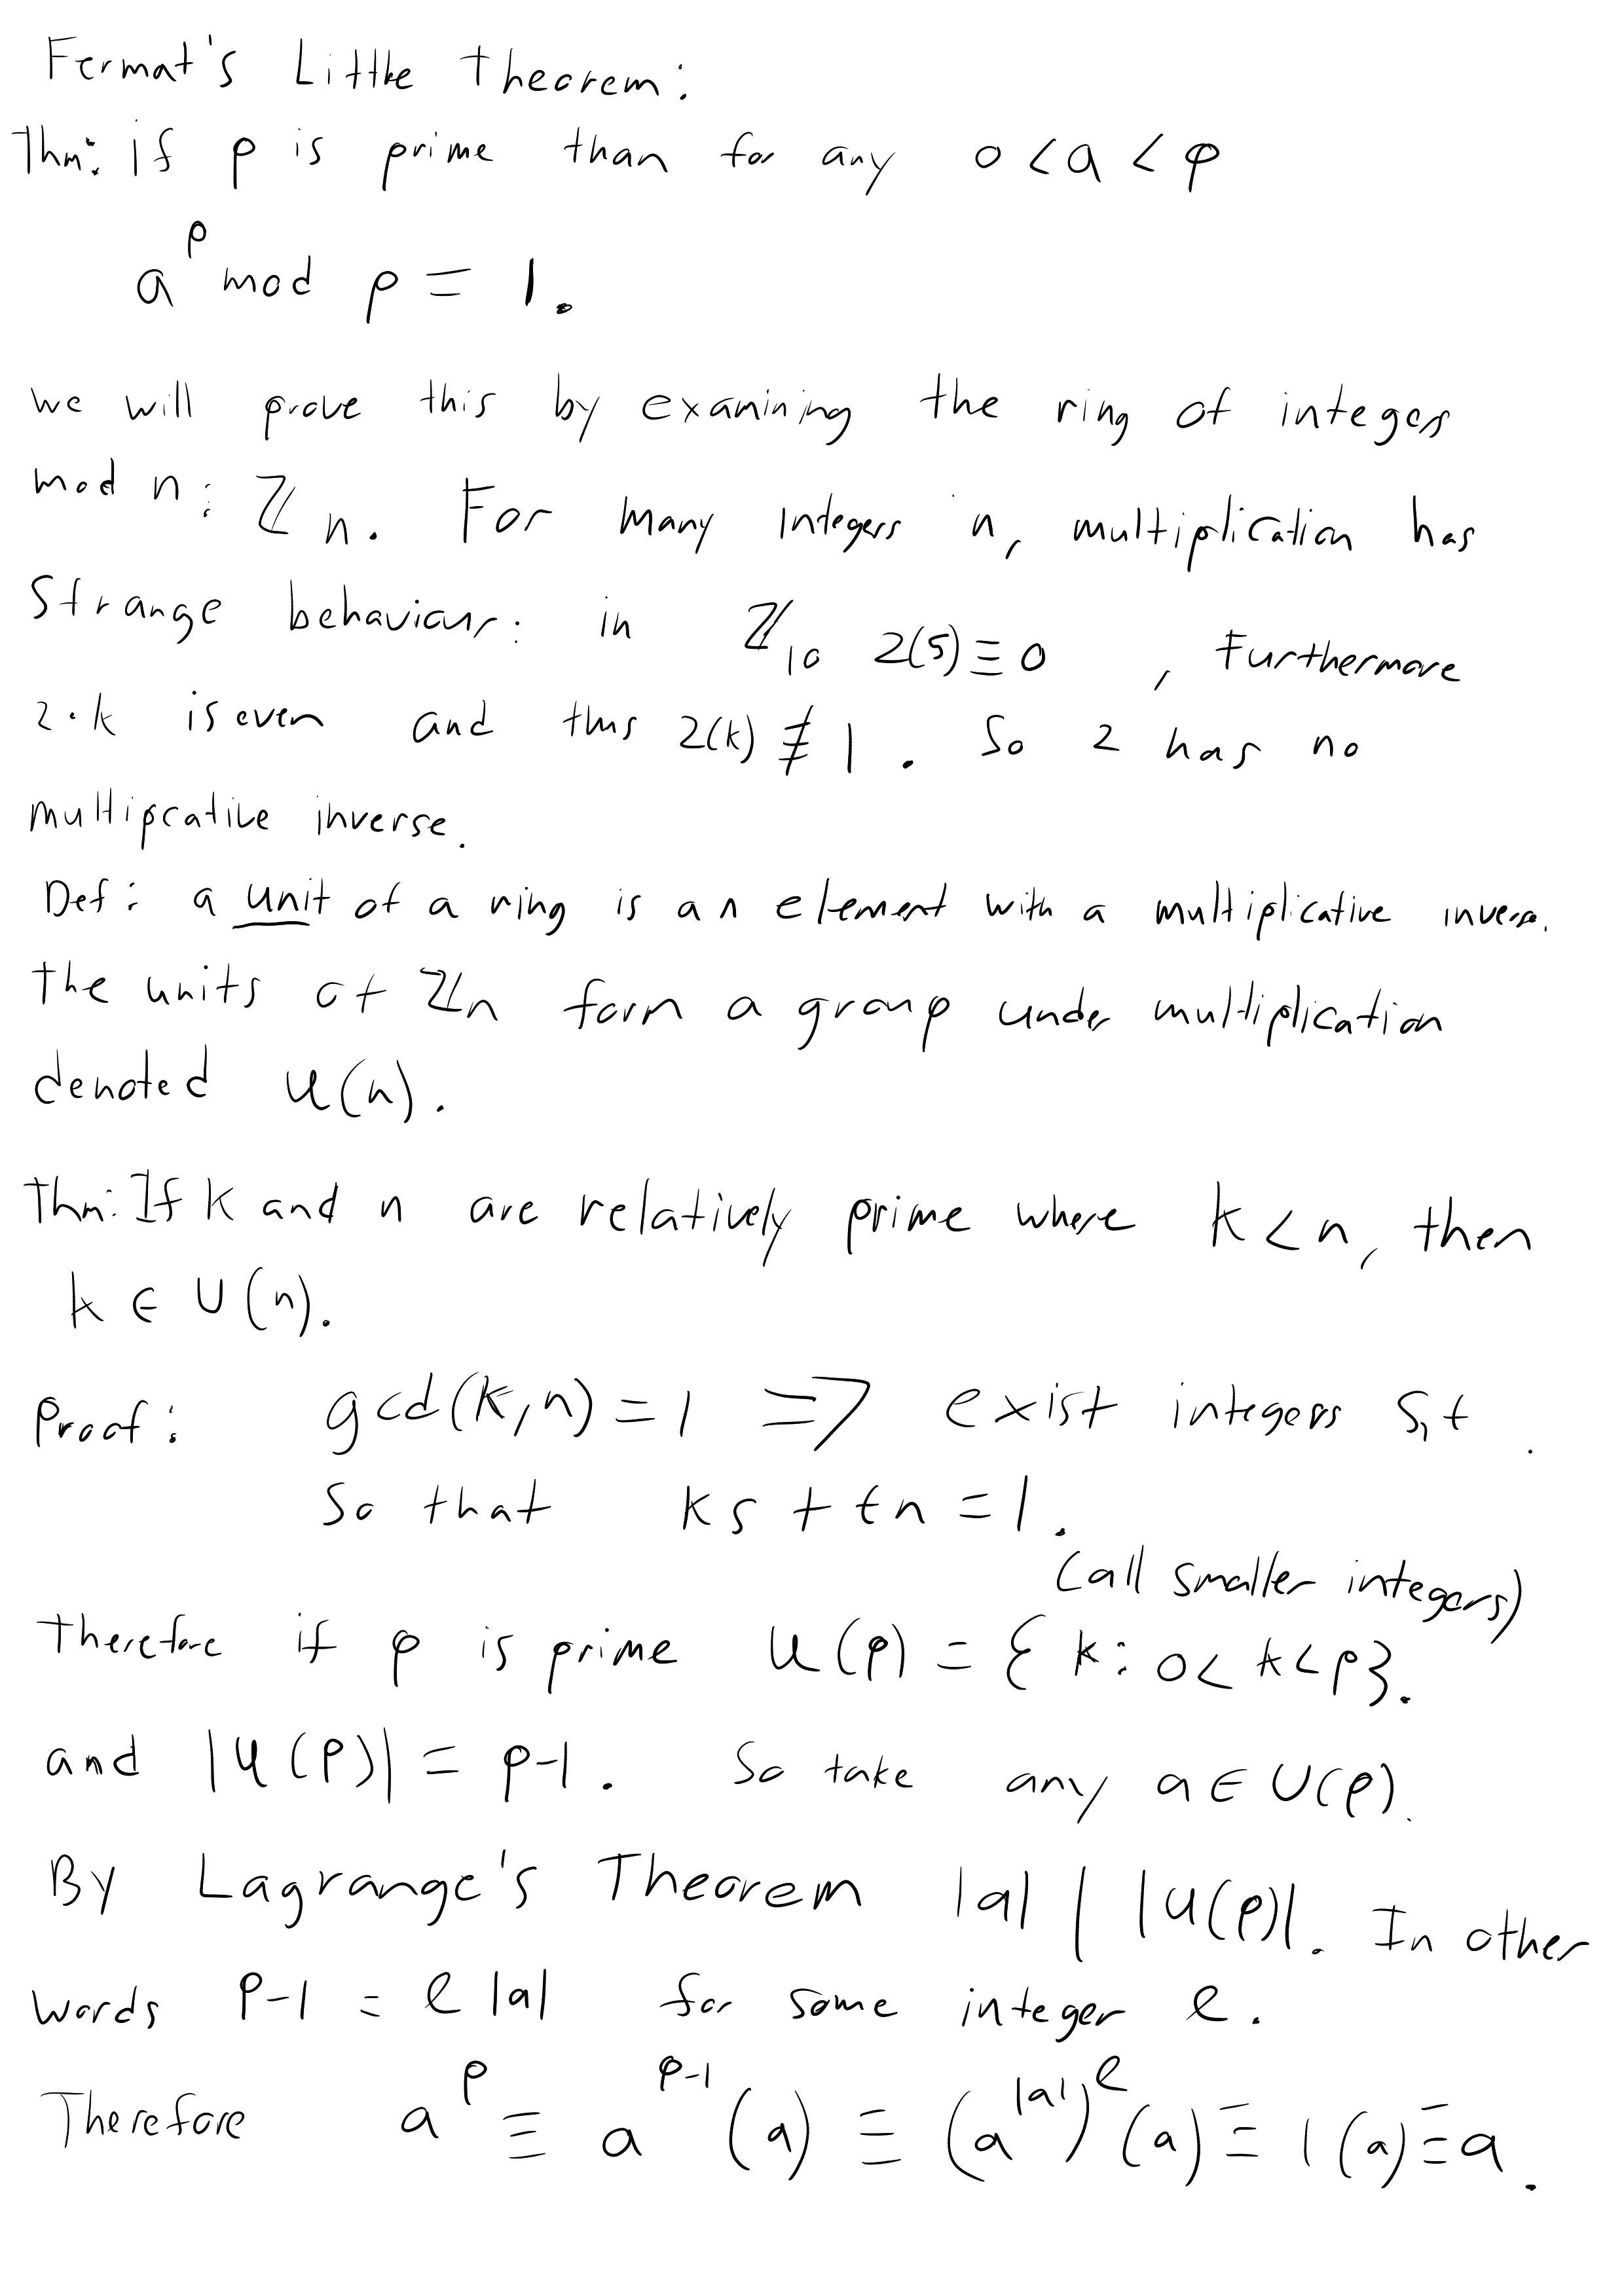 Fermat's Little Theorem:
Thm: If p is prime than for any 0 < a < p
a^p mod p = 1.
we will prove this by examining the ring of integers
mod n: ℤ_n. For many integers n, multiplication has
strange behaviour: in ℤ_10 2(5) ≡ 0 , Furthermore
2·k is even and thus 2(k) ≢ 1. So 2 has no
multipcative inverse.
Def: a unit of a ring is an element with a multiplicative inverse.
The units of ℤ_n form a group under multiplication
denoted U(n).
Thm: If k and n are relatively prime where k < n, then
k ∈ U(n).
Proof: gcd(k,n) = 1 => exist integers s,t
So that ks + tn = 1.
(all smaller integers)
Therefore if p is prime U(p) = { k: 0 < k < p }.
and |U(p)| = p-1. So take any a ∈ U(p).
By Lagrange's Theorem |a| | |U(p)|. In other
words p-1 = l|a| for some integer l.
Therefore a^p ≡ a^{p-1} (a) ≡ (a^{|a|})^l (a) ≡ 1(a) ≡ a.